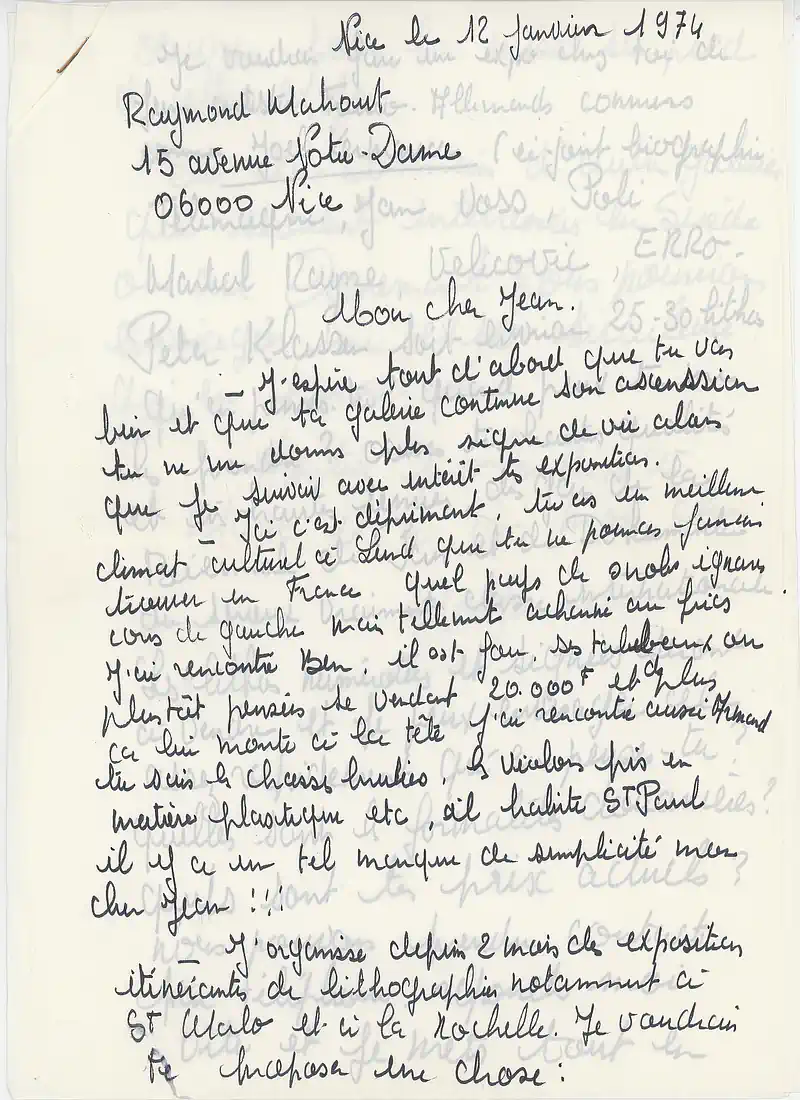 Nice le 12 Janvier 1974
Raymond Mahout
15 avenue Notre-Dame
06000 Nice
Mon cher Jean.
_ J'espère tout d'abord que tu vas
bien et que ta galerie continue son ascenssion
tu ne me donnes plus signe de vie alors
que je suivais avec intérêt tes expositions.
_ Ici c'est déprimant, tu as un meilleur
climat culturel à Lund que tu ne pourras jamais
trouver en France quel pays de snobs ignares
cons de gauche mais tellement acharné au fric
J'ai rencontré Ben, il est fou, ses tableaux ou
plustôt pensées se vendent 20.000F et plus
ça lui monte à la tête J'ai rencontré aussi Armand
tu sais les chaises brulées, les violons pris en
matière plastique etc, il habite ST Paul
il y a un tel manque de simplicité mon
cher Jean !!!
_ J'organise depuis 2 mois des expositions
itinérantes de lithographies notamment à
ST Malo et à la Rochelle. Je voudrais
te proposer une chose :